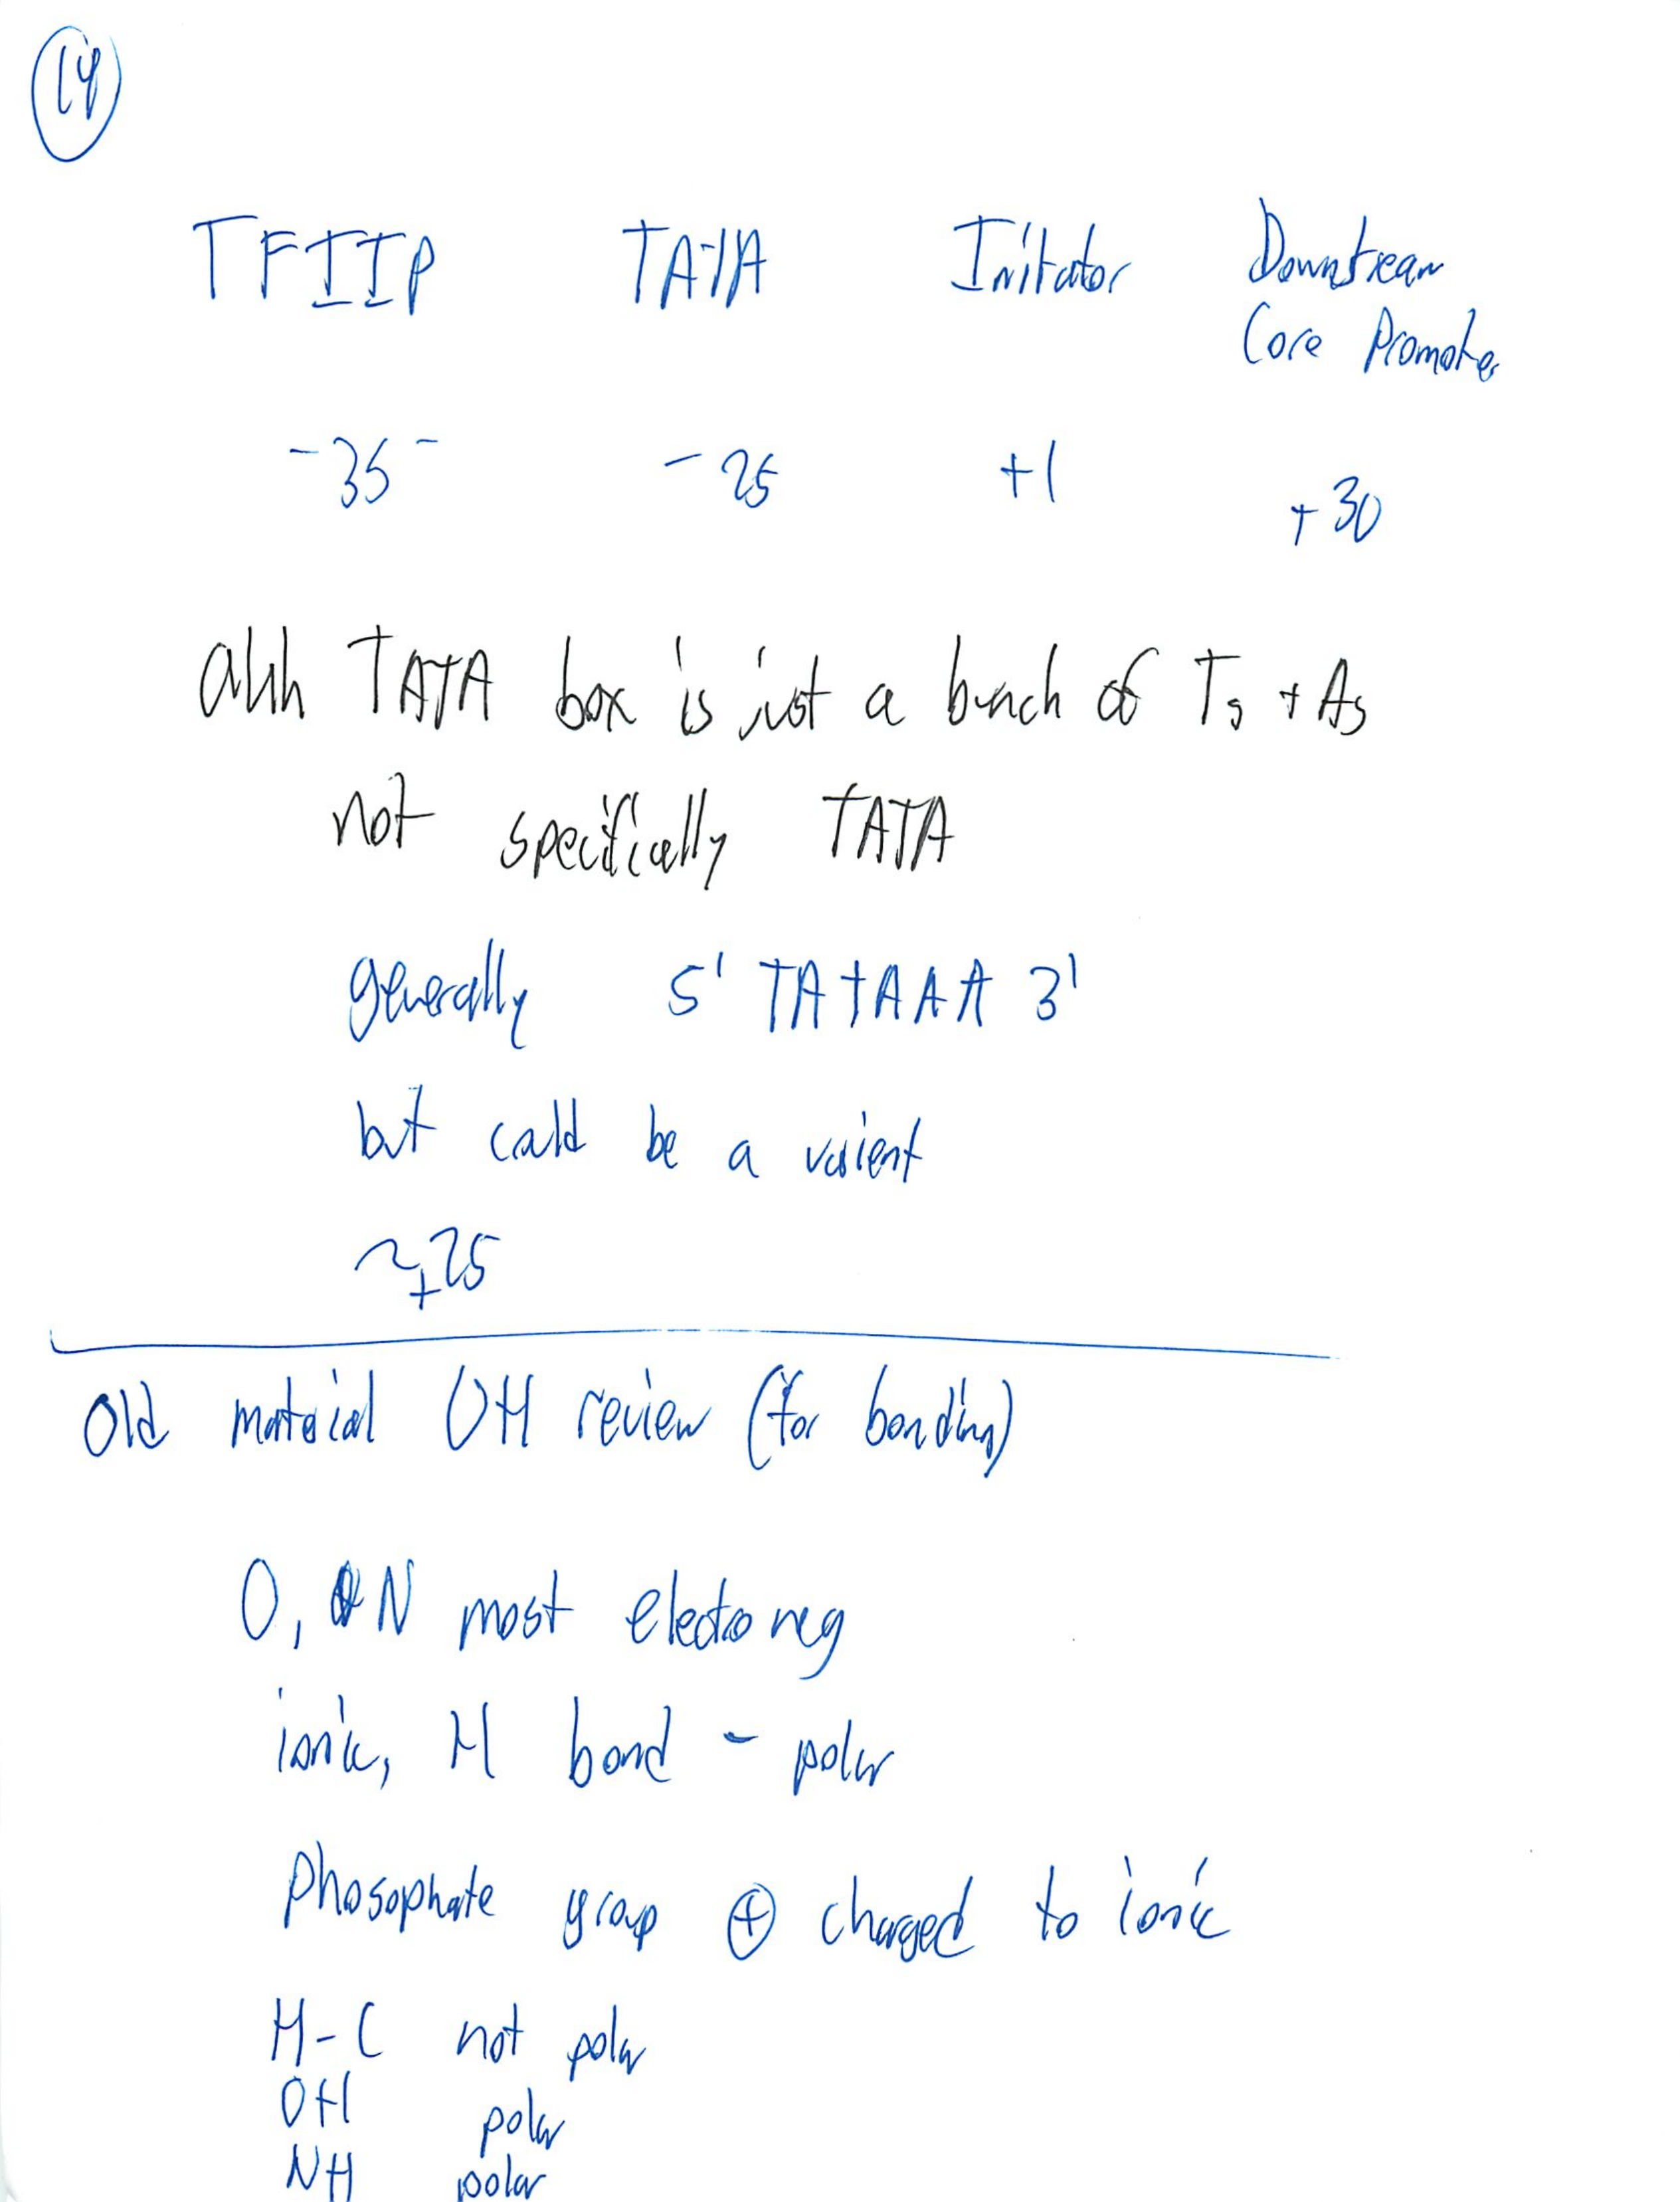 14
TFIIP TATA Initator Downstream
Core Promoter
-35- -25 +1 +30
ahh TATA box is just a bunch of Ts + As
not specifically TATA
generally 5' TATAAA 3'
but could be a varient
~+25
Old material OH review (for bonding)
O, N most electroneg
ionic, H bond - polar
phosophate group ⊕ charged to ionic
H-C not polar
OH polar
NH polar